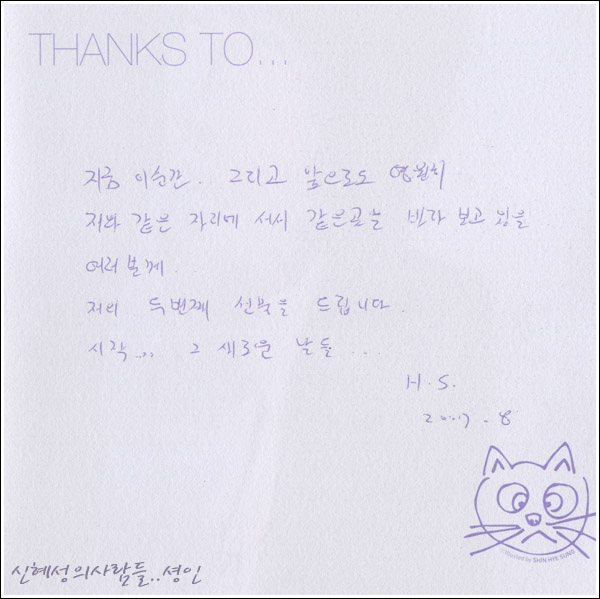 THANKS TO...
지금 이순간.. 그리고 앞으로도 영원히
저와 같은 자리에 서서 같은곳을 바라 보고 있을
여러분께..
저의 두번째 선물을 드립니다.
시작.... 그 새로운 날들...
H.S.
2007.8
Illustrated by SHIN HYE SUNG
신혜성의사람들..셩인